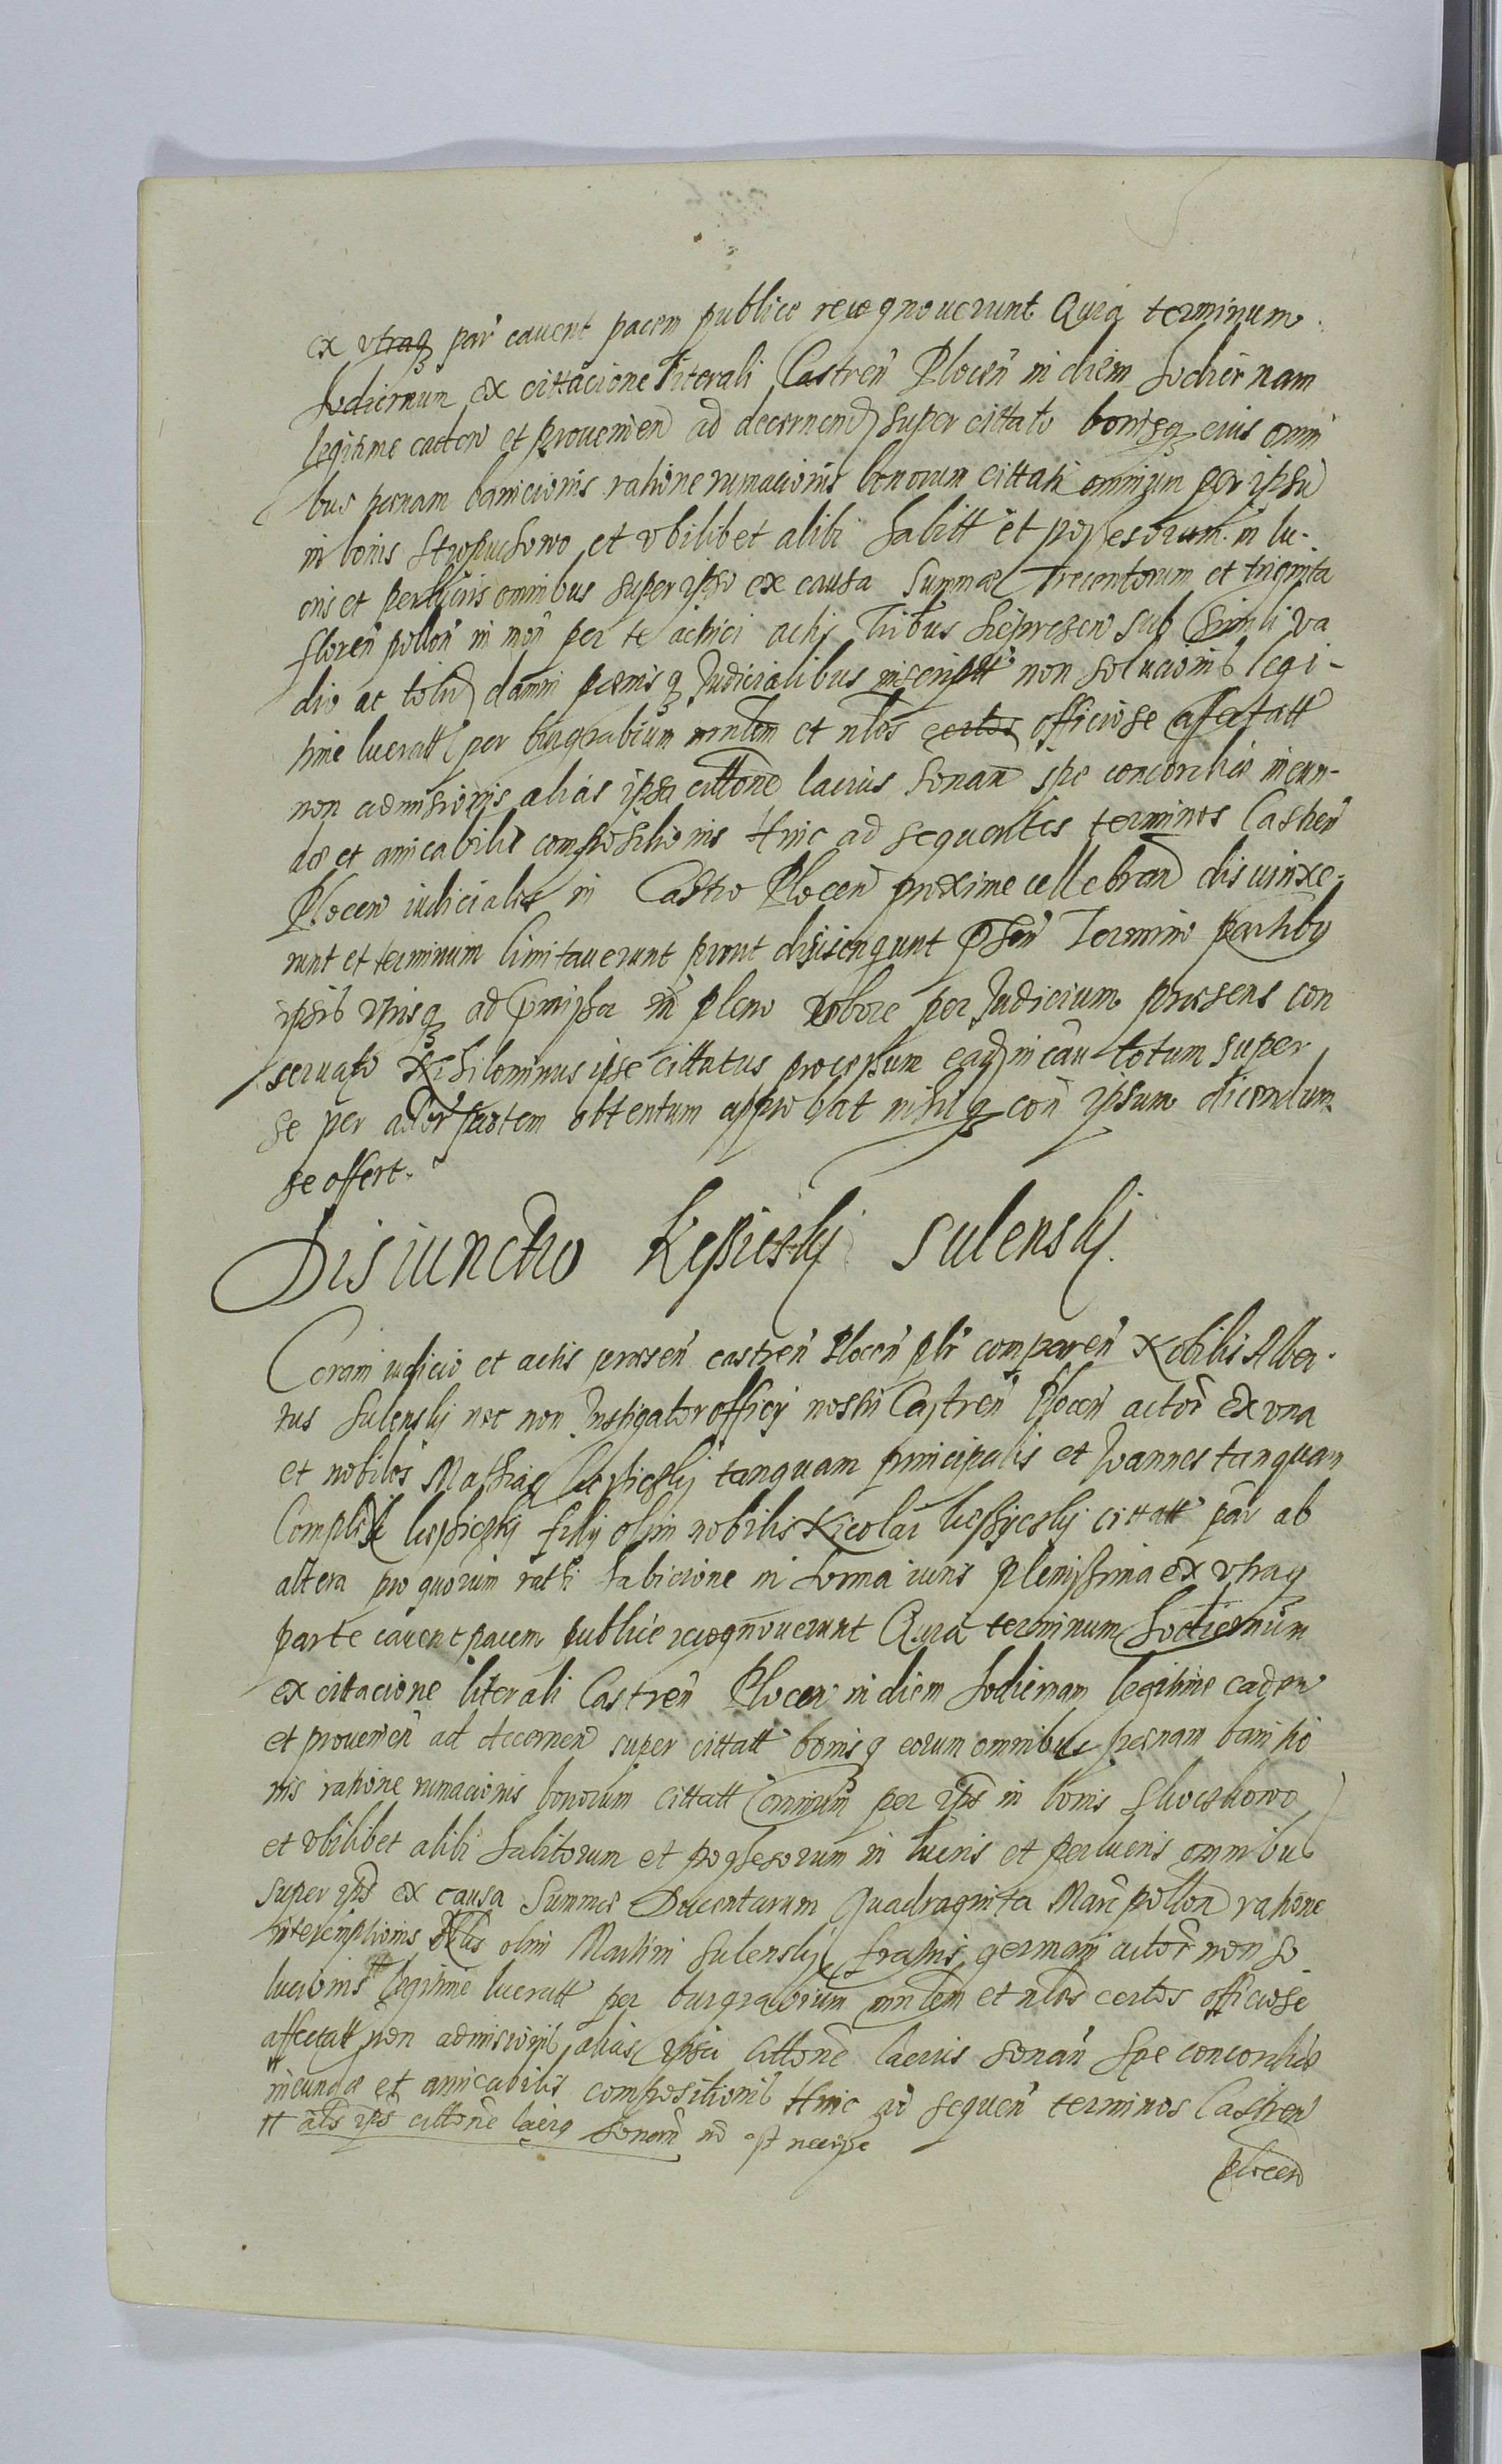 ex utraq par cavent pacem publice recognoverunt Quia terminum
hodiernum ex cittacione literali Castren Plocen in diem hodiernam
legitime caden et provenien ad decernend super cittato bonisq eius omni
bus poenam banicionis ratione rumacionis bonorum cittati omnium per ipsu
in bonis et ubilibet alibi habitt et possesorum in lu-
cris et perlucris omnibus super ipso ex causa Summae Trecentorum et triginta
floren pollon in mon per te actrici actis sub simili va
dio ac totid damni poenisq Judicialibus inscriptt non solucionis legi-
time lucratt per burgrabium mnlem et nlos certos officiose affectatt
non admissionis alias ipsa cittone lacius sonan spe concordiae ineun-
dae et amicabilis compositionis Hinc ad sequentes terminos Castren
Plocen iudiciales in Castro Plocen proxime cellebran disiunxe-
runt et terminum limitaverunt prout disiungunt Termino partiby
ipsis utrisq ad pmissa in pleno robore per Judicium praesens con
servato Nihilominus ipse cittatus processum ead in cau totum super
se per actor partem obtentum approbat nihilq con ipsum dicendum
se offert.
Disiunctio Kępiczskj Sulenskj.
Coram iudicio et actis praesen castren Plocen plr comparen Nobilis Alber-
tus Sulenskj nec non Instigator officij nostri Castren Plocen actor ex una
et nobiles Mathias tanquam principalis et Joannes tanquam
filij olim nobilis Nicolai cittatt par ab
altera pro quorum rathi habicione in forma iuris plenissima ex utraq
parte cavent pacem publice recognoverunt Quia terminum hodiernum
ex cittacione literali Castren Plocen in diem hodiernam legitime caden
et provenien ad decernen super cittatt bonisq eorum omnibus poenam banitio
nis ratione rumacionis bonorum cittatt omnium per ipos in bonis
et ubilibet alibi habitorum et possesorum in lucris et perlucris omnibus
super ipos ex causa Summae Ducentarum Quadraginta Marc pollon ratione
interemptionis olim Martini Sulenskj fratris germani actor non so
lucionis legitime lucratt per burgrabium mnlem et nlos certos officiose
affectatt non admissionis alias ipsa cittone lacius sonan Spe concordiae
ineundae et amicabilis compositionis Hinc ad sequen terminos Castren
als ips cittone laciq sonan no est necesse
Plocen